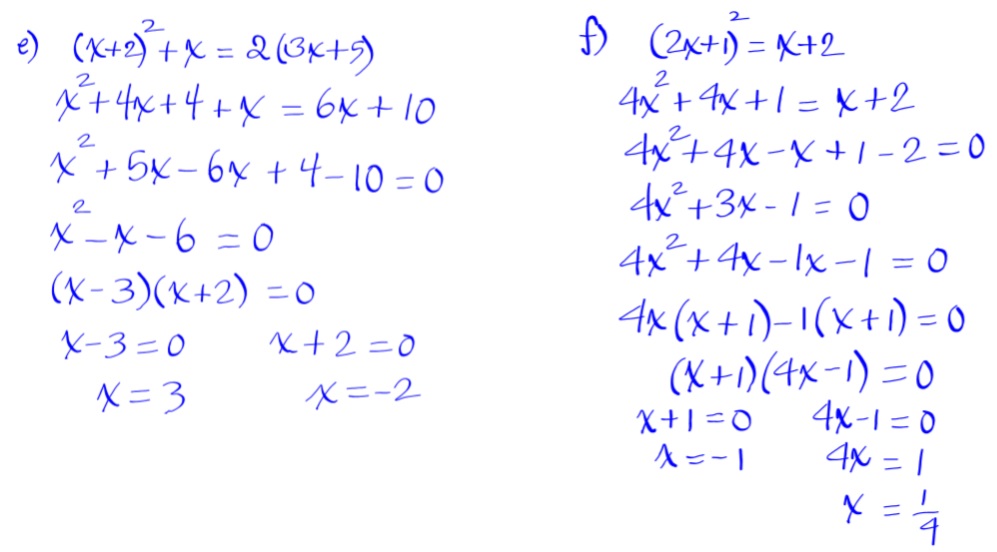 e) (x+2)² + x = 2(3x+5)
x² + 4x + 4 + x = 6x + 10
x² + 5x - 6x + 4 - 10 = 0
x² - x - 6 = 0
(x-3)(x+2) = 0
x-3=0 x+2=0
x=3 x=-2
f) (2x+1)² = x+2
4x² + 4x + 1 = x+2
4x² + 4x - x + 1 - 2 = 0
4x² + 3x - 1 = 0
4x² + 4x - 1x - 1 = 0
4x(x+1) - 1(x+1) = 0
(x+1)(4x-1) = 0
x+1=0 4x-1=0
x=-1 4x = 1
x = 1/4